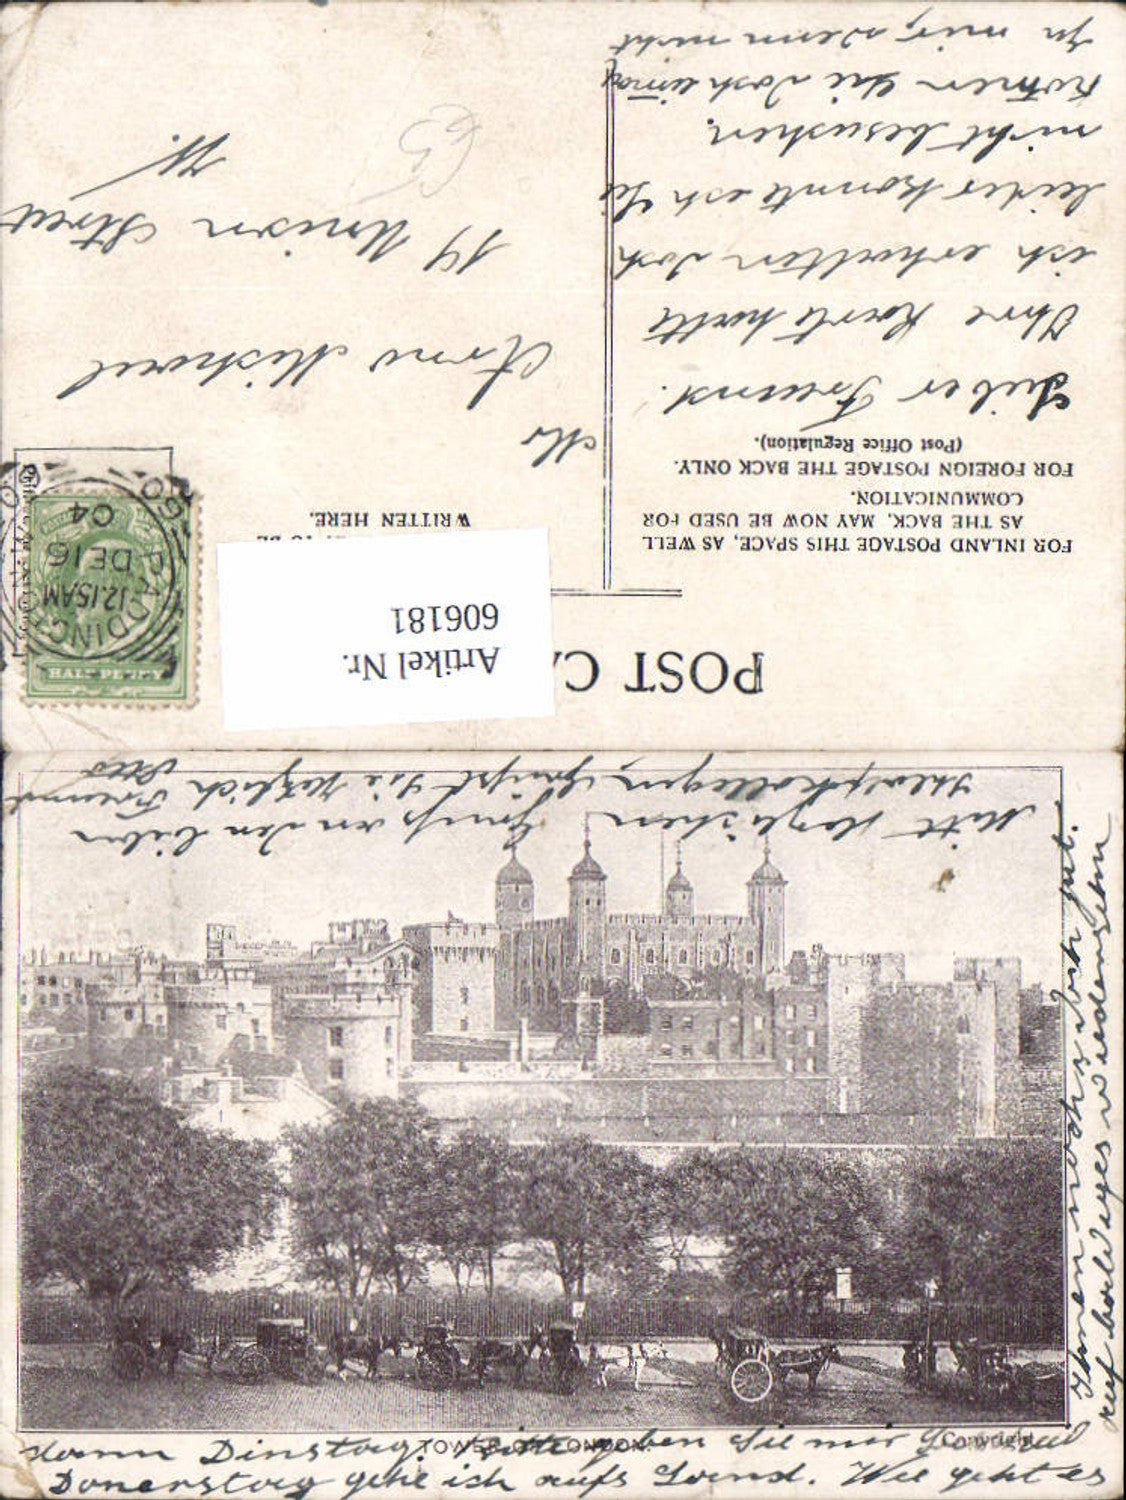 POST CA
Artikel Nr.
606181
FOR INLAND POSTAGE THIS SPACE, AS WELL
AS THE BACK, MAY NOW BE USED FOR
COMMUNICATION.
FOR FOREIGN POSTAGE THE BACK ONLY.
(Post Office Regulation).
WRITTEN HERE.
HALF PENNY
PADDINGTON
12.15AM
DE 16
04
Lieber Freund.
Ihre Karte hatte
ich erhalten doch
leider konnte ich Sie
nicht besuchen.
Kommen Sie doch einmal
zu mir, denn nicht
Mr
Arno
19 Street
W.
Mitt Herzlichen Gruß an den lieben
Grüßt Sie Herzlich Freund
kann Dinstag, bitte geben Sie mir
Donerstag gehe ich aufs Land. Wie geht es
Ihnen noch gut.
auf baldiges wiedersehen
TOWER OF LONDON.
Copyright